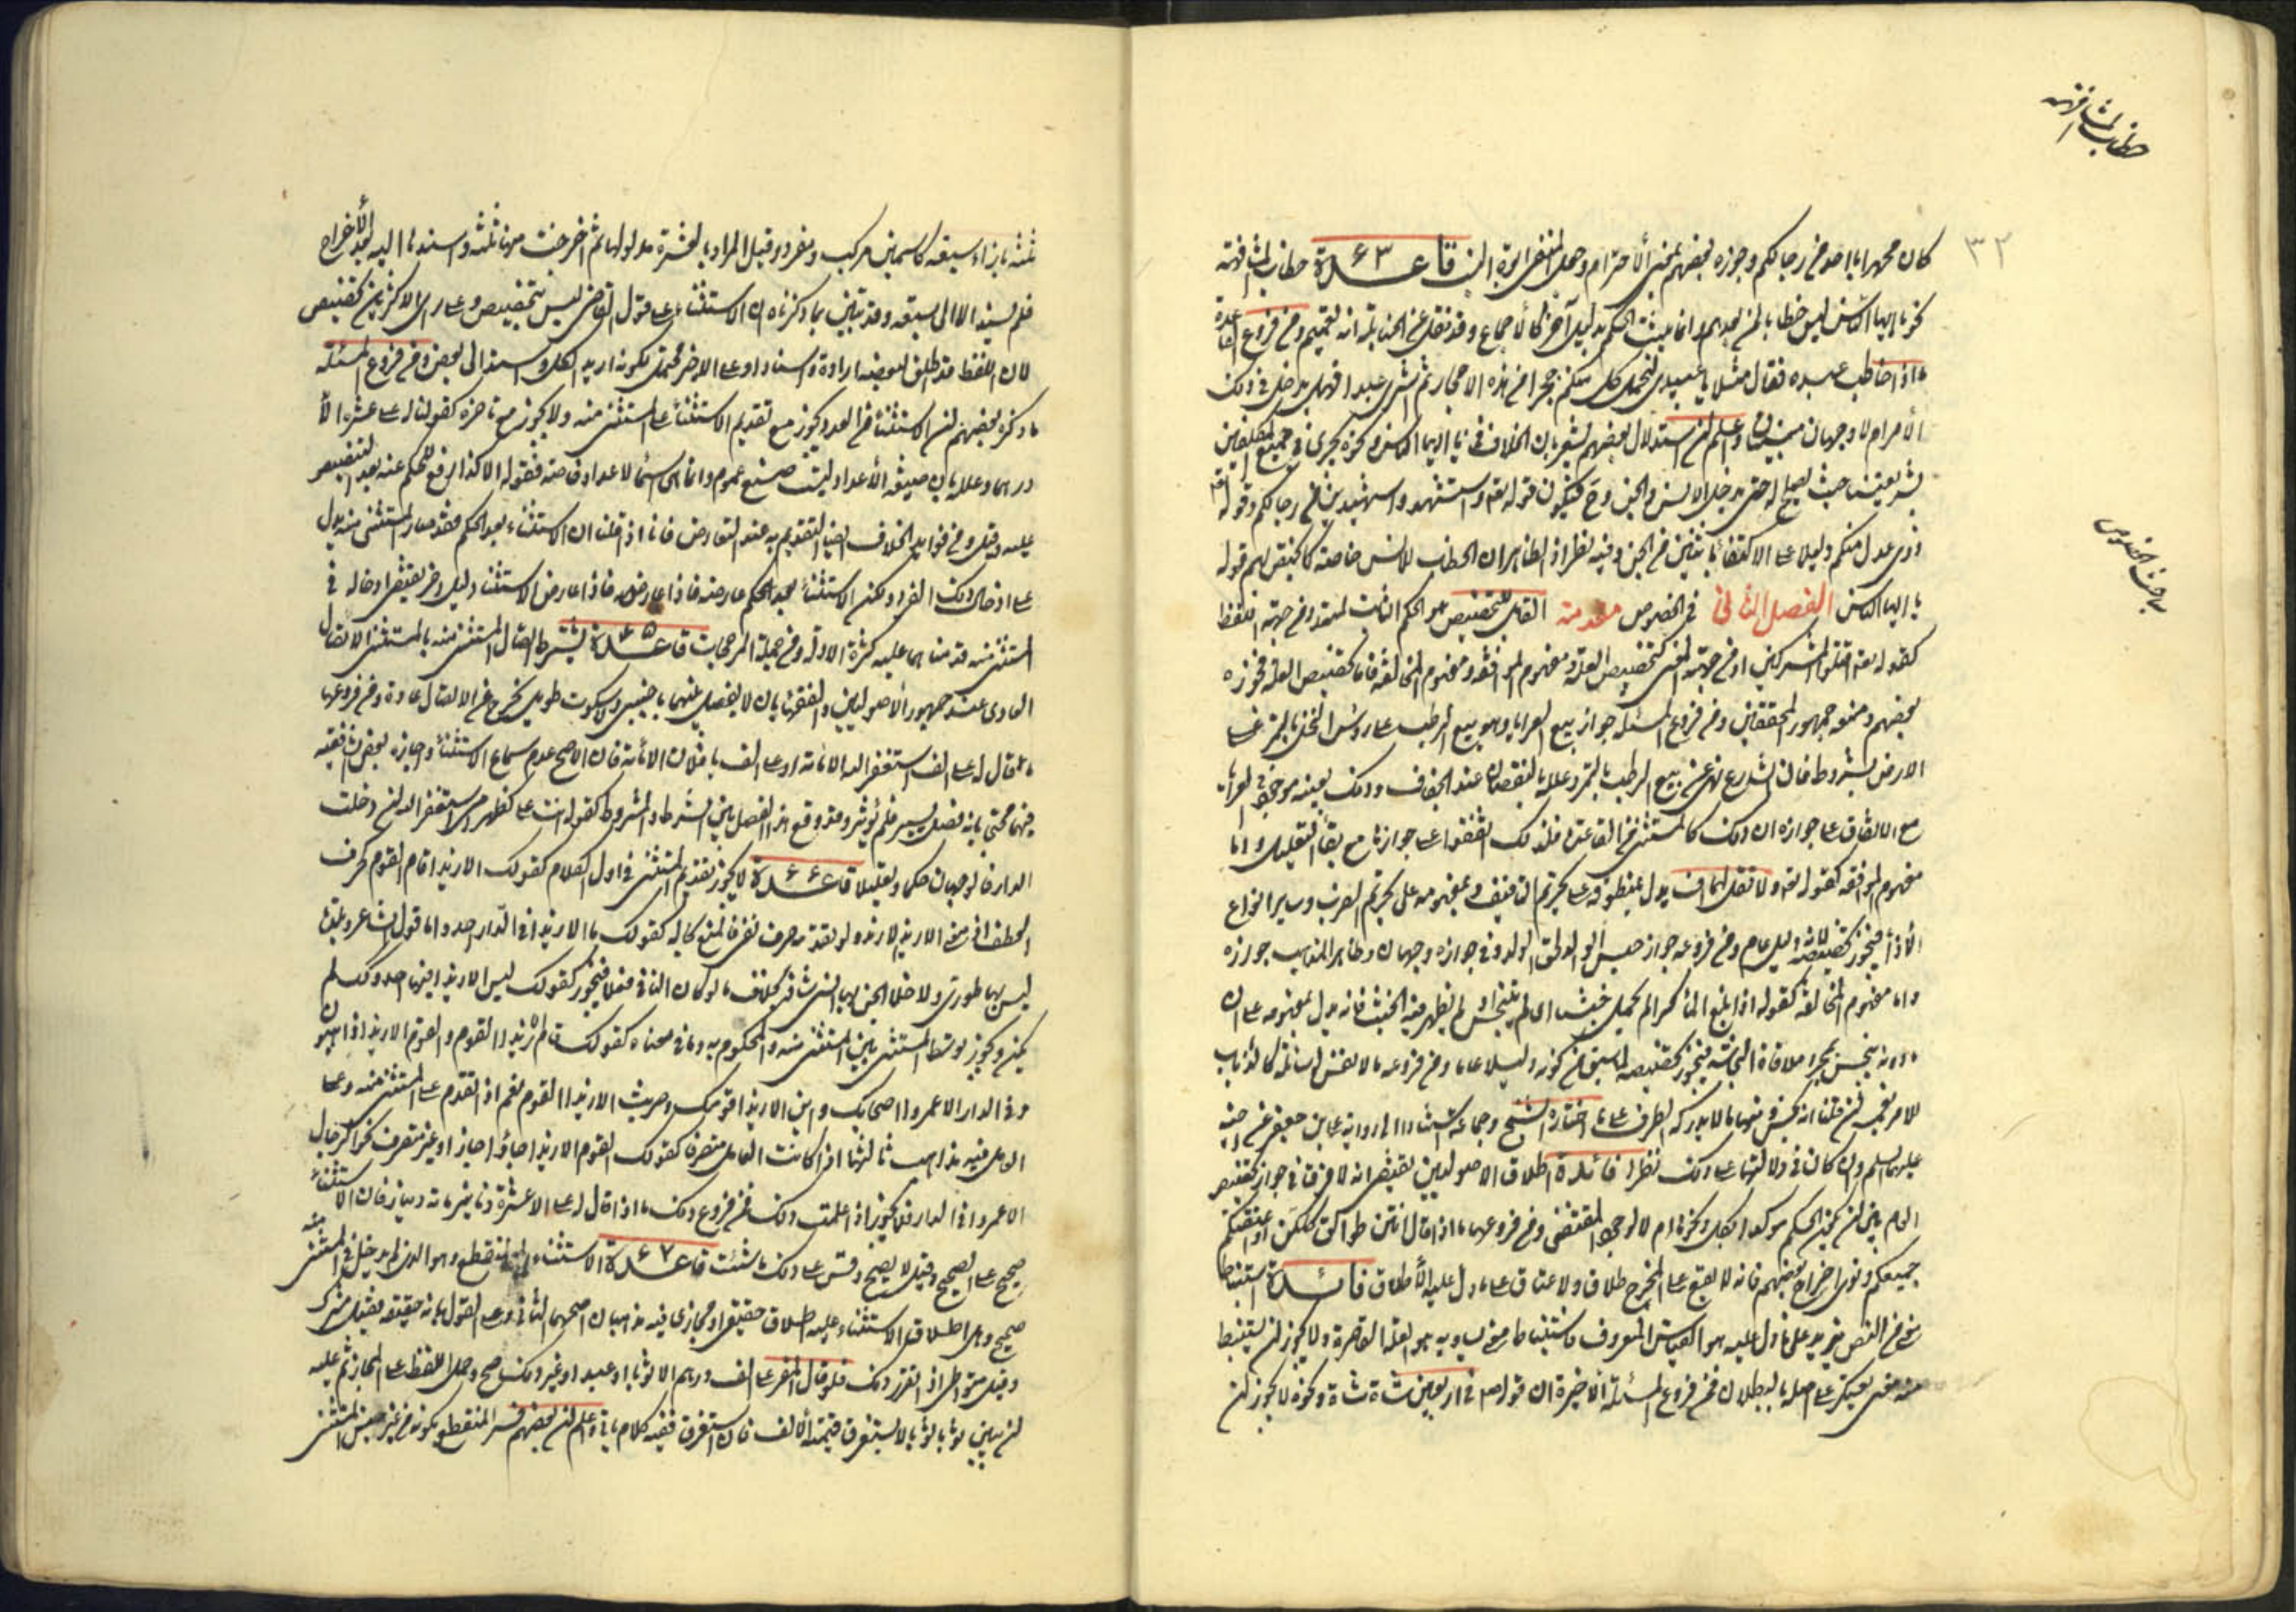 خطاب المشافهة
٣٢
كان محمد ابا احد من رجالكم وجوزه بعضهم بمعنى الاحترام وحمل النفي ابوة النسب قاعدة ٦٣ خطاب المشافهة
نحو يا ايها الناس ليس خطابا لمن بعدهم وانما يثبت الحكم بدليل آخر كالاجماع وقد نقل عن الحنابلة انه لتعميم ومن فروع القاعدة
ما اذا خاطب عبيده فقال مثلا يا عبيدي ليحمل كل منكم حجرا من هذه الاحجار ثم اشترى عبدا فهل يدخل في ذلك
الامر ام لا وجهان مبنيان واعلم ان استدلال بعضهم يشعر بان الخلاف في يا ايها الناس ونحوه يجري في جميع المكلفين
بشريعتنا حيث يصلح له حتى يدخل الانس والجن وح فيكون قوله تعالى واستشهدوا شهيدين من رجالكم وقوله
ذوي عدل منكم دليلا على الاكتفاء باثنين من الجن وفيه نظر اذ الظاهر ان الخطاب للانس خاصة كما يختص بهم قوله
مباحث الخصوص
يا ايها الناس الفصل الثاني في الخصوص مقدمة القابل للتخصيص هو الحكم الثابت لمتعدد من جهة اللفظ
كقوله تعالى اقتلوا المشركين او من جهة المعنى كتخصيص العلة ومفهوم الموافقة ومفهوم المخالفة فاما تخصيص العلة فجوزه
بعضهم ومنعه جمهور المحققين ومن فروع المسئلة جواز بيع العرايا وهو بيع الرطب على رؤس النخل بالتمر على
الارض بشروط فان الشارع نهى عن بيع الرطب بالتمر وعلله بالنقصان عند الجفاف وذلك بعينه موجود في العرايا
مع الاتفاق على جوازه ان ذلك كالمستثنى من القاعدة فلذلك اتفقوا على جوازها مع بقاء التعليل واما
مفهوم الموافقة كقوله تعالى ولا تقل لهما اف يدل بمنطوقه على تحريم التأفيف وبمفهومه على تحريم الضرب وساير انواع
الاذى فيجوز تخصيصه لانه دليل عام ومن فروعه جواز حبس الوالد لحق الولد وفي جوازه وجهان وظاهر المذهب جوازه
واما مفهوم المخالفة كقوله اذا بلغ الماء كرا لم يحمل خبثا اي لم يتنجس او لم يظهر فيه الخبث فانه يدل بمفهومه على ان
ما دونه ينجس بمجرد ملاقاة النجاسة فيجوز تخصيصه لما سبق من كونه دليلا عاما ومن فروعه ما لا نفس له سائلة كالذباب
عليهما السلم وان كان في دلالتها على ذلك نظر فائدة اطلاق الاصوليين يقتضي انه لا فرق في جواز تخصيص
العام بين ان يكون الحكم مؤكدا بكل ونحوها ام لا لوجود المقتضي ومن فروعها ما اذا قال انتن طوالق كلكن او اعتقتكم
جميعكم ونوى اخراج بعضهم فانه لا يقع على المخرج طلاق ولا عتاق على ما دل عليه الاطلاق فائدة استنباط
معنى من النص يزيد على ما دل عليه هو القياس المعروف واستنباط معنى يساويه هو العلة القاصرة ولا يجوز ان يستنبط
منه معنى يعكر على اصله بالبطلان فمن فروع المسئلة الاخيرة ان قوله في اربعين شاة شاة ونحوه لا يجوز ان
ثلثة بازاء سبعة كاسمين مركب ومفرد وقيل المراد بالعشرة مدلولها ثم اخرجت منها ثلثة واسند ما اليه بعد الاخراج
فلم يسند الا الى سبعة وقد تبين بما ذكرناه ان الاستثناء على قول القاضي ليس بتخصيص وعلى راي الاكثرين تخصيص
لان اللفظ قد اطلق لبعضه ارادة واسنادا وعلى الاخر محتمل لكونه اريد الكل واسند الى البعض ومن فروع المسئلة
ما ذكره بعضهم ان الاستثناء من العدد يجوز مع تقديم الاستثناء على المستثنى منه ولا يجوز مع تاخره كقولنا له على عشرة الا
درهما وعلله بان صيغة الاعداد ليست صيغ عموم وانما هي اسماء لاعداد خاصة فقوله الا كذا رفع للحكم عنه بعد التنصيص
عليه وقيل ومن فوايد الخلاف ايضا التقديم به عند التعارض فانا اذا قلنا ان الاستثناء بعد الحكم فقد صار المستثنى منه يدل
على ادخال ذلك الفرد ولكن الاستثناء بعد الحكم عارضه فاذا عارض الاستثناء دليل اخر يقتضي ادخاله في
المستثنى منه قدمناهما عليه لكثرة الادلة ومن جملة المرجحات قاعدة ٦٥ يشترط اتصال المستثنى منه بالمستثنى الاتصال
العادي عند جمهور الاصوليين والفقهاء بان لا يفصل بينهما باجنبي ولا سكوت طويل يخرج عن الاتصال عادة ومن فروعها
ما لو قال له على الف استغفر الله الا مائة او على الف يا فلان الا مائة فان الاصح عدم سماع الاستثناء واجازه بعض الشافعية
فيهما محتجا بانه فصل يسير فلم يؤثر وقد وقع هذا الفصل بين الشرط والمشروط كقوله انت على كظهر امي استغفر الله ان دخلت
الدار فالوجهان حكما وتعليلا قاعدة ٦٦ لا يجوز تقديم المستثنى في اول الكلام كقولك الا زيدا قام القوم كحرف
العطف اذ معنى الا زيد لا زيد ولو تقدمه حرف نفي فالمنع بحاله كقولك ما الا زيدا في الدار احد واما قول الشاعر وبلدة
ليس بها طوري ولا خلا الجن بها انسي شاذ بخلاف ما لو كان النافي فعلا فيجوز كقولك ليس الا زيدا فيها احد وكذلك لم
يكن ويجوز توسط المستثنى بين المستثنى منه والمحكوم به وما في معناه كقولك قام الا زيدا القوم والقوم الا زيدا ذاهبون
وفي الدار الا عمروا اصحابك واين الا زيدا قومك وضربت الا زيدا القوم نعم اذا تقدم على المستثنى منه وعلى
العامل فيه مذاهب ثالثها ان كانت العامل متصرفا كقولك القوم الا زيدا جاؤا جاز او غير متصرف نحو الرجال
الا عمروا في الدار فلا يجوز اذا علمت ذلك فمن فروع ذلك ما اذا قال له على الا عشرة دنانير مائة دينار فان الاستثناء
صحيح على الصحيح وقيل لا يصح وقس على ذلك ما شئت قاعدة ٦٧ الاستثناء المنقطع وهو الذي لم يدخل في المستثنى منه
صحيح وهل اطلاق الاستثناء عليه اطلاق حقيقي او مجازي فيه مذهبان اصحهما الثاني وعلى القول بانه حقيقة فقيل مشترك
وقيل متواطئ اذا تقرر ذلك فلو قال المقر على الف درهم الا ثوبا او عبدا او غير ذلك صح وحمل اللفظ على المجاز ثم عليه
ان يبين ثوبا لا يستغرق قيمته الالف فان استغرق ففيه كلام ياتي واعلم ان بعضهم فسر المنقطع بكونه من غير جنس المستثنى